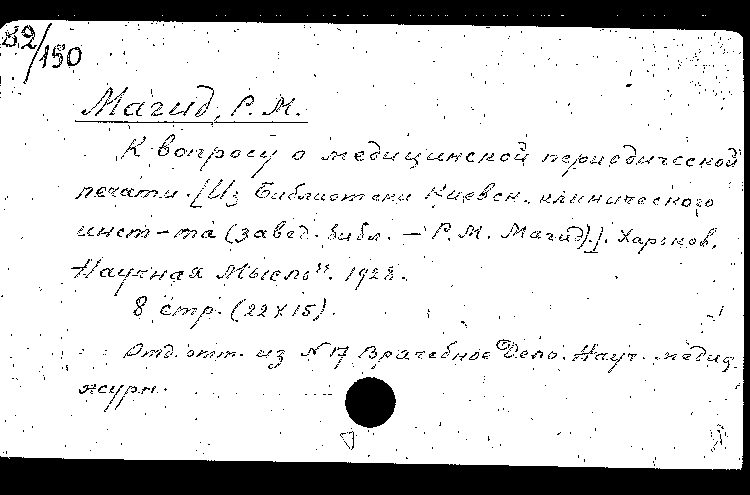 82/150
Магид, Р. М.
К вопросу о медицинской периодической
печати. [Из Библиотеки Киевск. клинического
инст-та (завед. библ. – Р. М. Магид).]. Харьков.
"Научная Мысль". 1928.
8 стр. (22х15).
Отд. отт. из N 17 Врачебное Дело. Науч. медиц.
журн.